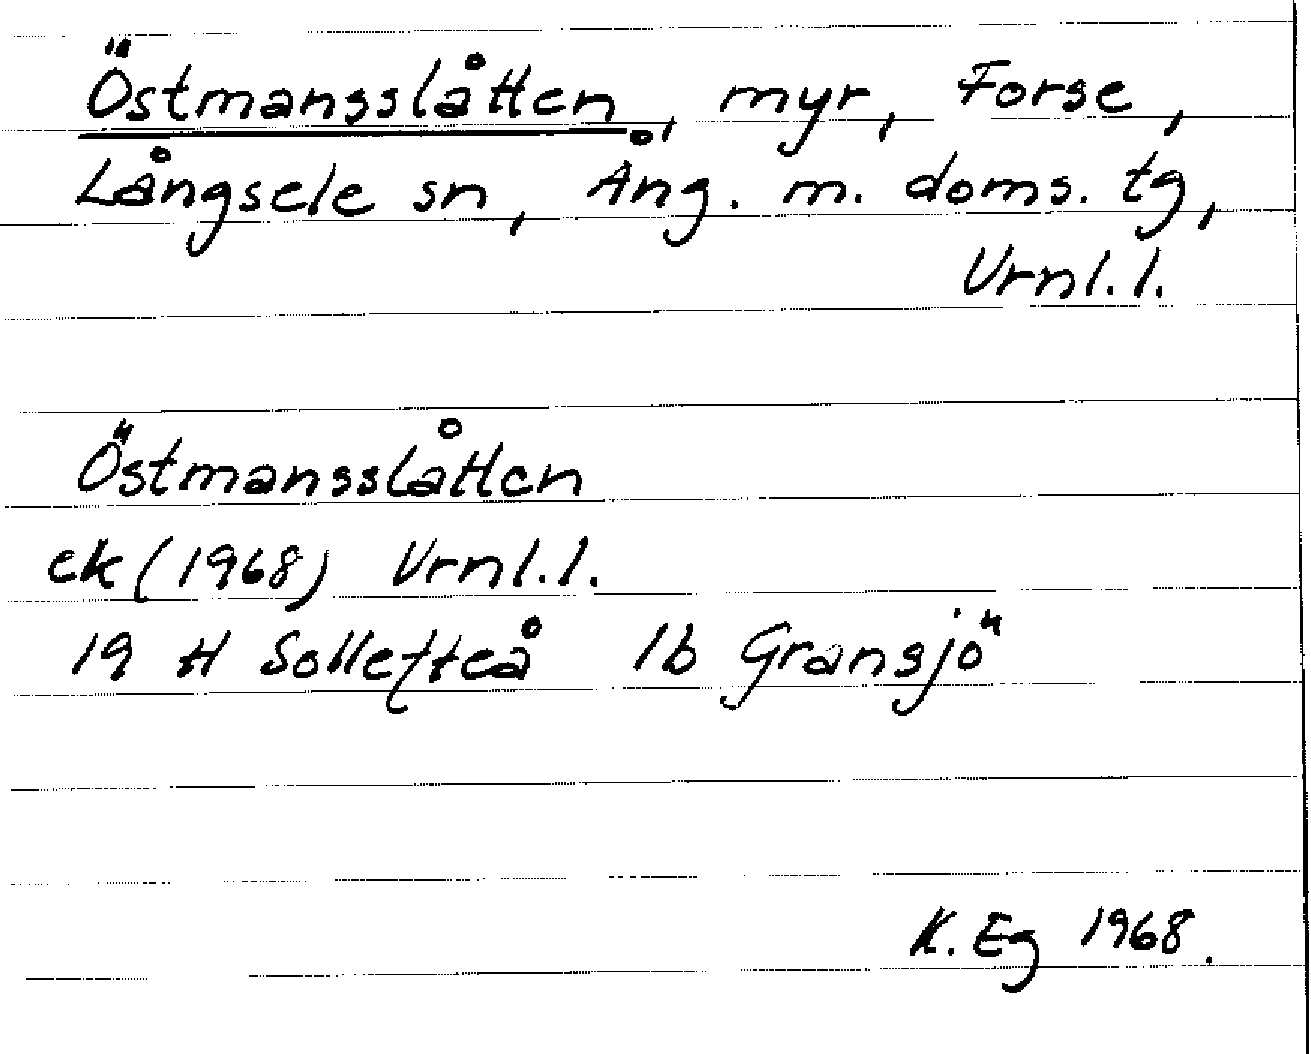 Östmansslåtten, myr, Forse,
Långsele sn, Ång. m. doms. tg,
Vrnl.l.
Östmansslåtten
ek (1968) Vrnl.l.
19 H Sollefteå 1b Gransjö
K. Eg 1968.